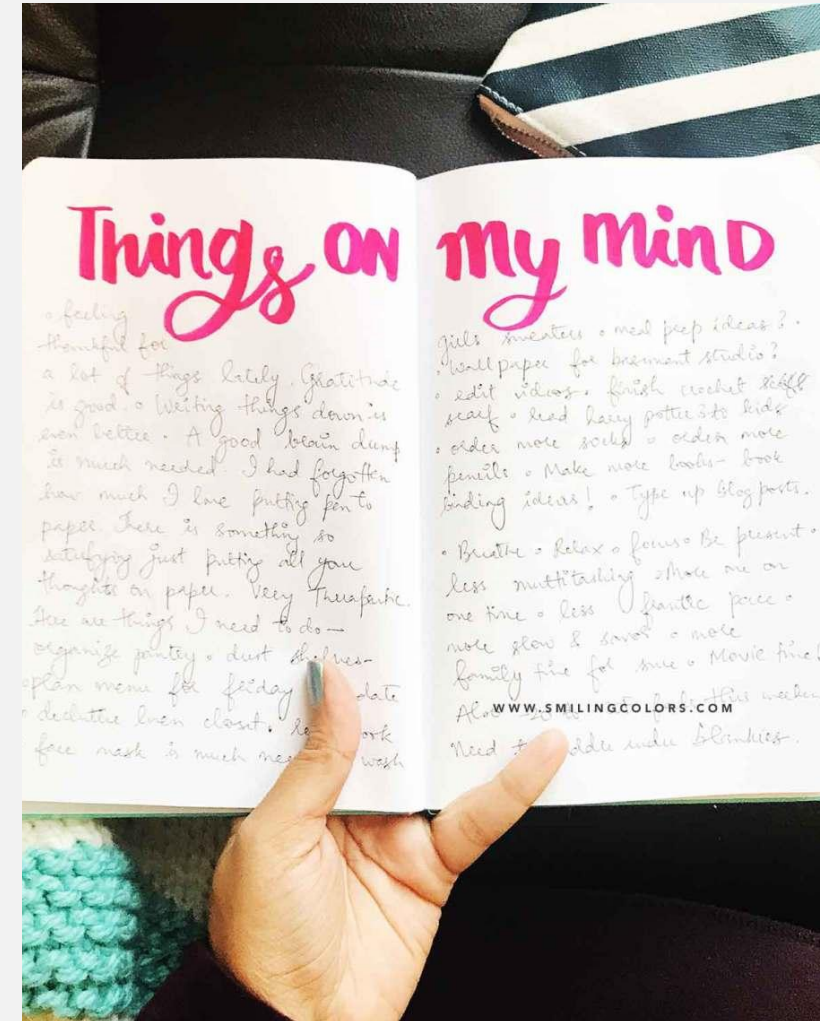 Things ON my minD
• feeling
thankful for
a lot of things lately. Gratitude
is good. • Writing things down is
even better. A good brain dump
is much needed. I had forgotten
how much I love putting pen to
paper. There is something so
satisfying just putting all you
thoughts on paper. Very Therapeutic.
Here are things I need to do —
organize pantry • dust shelves -
• plan menu for friday date
• declutter linen closet.
face mask is much wash
girls sweaters • meal prep ideas? •
• wall paper for basement studio?
• edit videos. finish crochet
scarf • Read harry potter 3 to kids
• order more socks • order more
pencils • Make more books - book
binding ideas! • Type up blog posts.
• Breathe • Relax • focus • Be present •
less multitasking • More one on
one time • less frantic pace •
more slow & savor • more
family time for sure • Movie time!
WWW.SMILINGCOLORS.COM
Also this
Need under blankies.